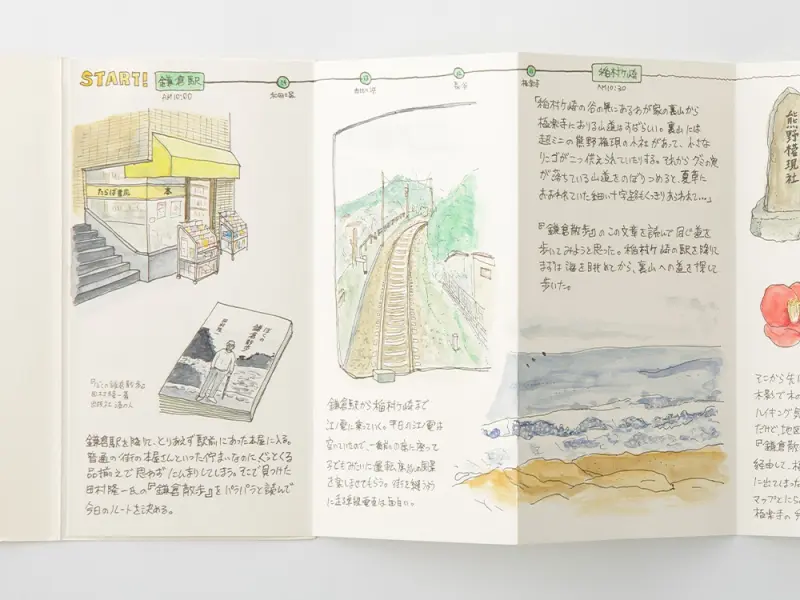 START!
鎌倉駅
AM10:00
和田塚
由比ヶ浜
長谷
極楽寺
稲村ヶ崎
AM10:30
たらば書房 本
ぼくの
鎌倉散歩
田村隆一
『ぼくの鎌倉散歩』
田村隆一著
出版社 港の人
鎌倉駅を降りて、とりあえず駅前にあった本屋に入る。
普通の街の本屋さんといった佇まいなのにぐっとくる
品揃えで思わずにんまりしてしまう。そこで見つけた
田村隆一氏の『鎌倉散歩』をパラパラと読んで
今日のルートを決める。
鎌倉駅から稲村ヶ崎まで
江ノ電に乗っていく。平日の江ノ電は
空いていたので、一番前の席に座って
子どもみたいに運転席の風景
を楽しませてもらう。街を縫うよう
に走る
電車は面白い。
「稲村ヶ崎の谷の奥にあるわが家の裏山から
極楽寺におりる山道はすばらしい。裏山には
超ミニの熊野権現の小社があって、小さな
リンゴが二つ供えられていたりする。それからグミの実
が落ちている山道をのぼりつめると、夏草に
おおわれていた細い十字路もくっきりあらわれて…」
『鎌倉散歩』のこの文章を読んで同じ道を
歩いてみようと思った。稲村ヶ崎の駅を降りて
まずは海を眺めてから、裏山への道を探して
歩いた。
熊野権現社
木影で
ハイキング
だけど、地図
『鎌倉散
経由して、
に出てしまった
マップとにら
極楽寺の